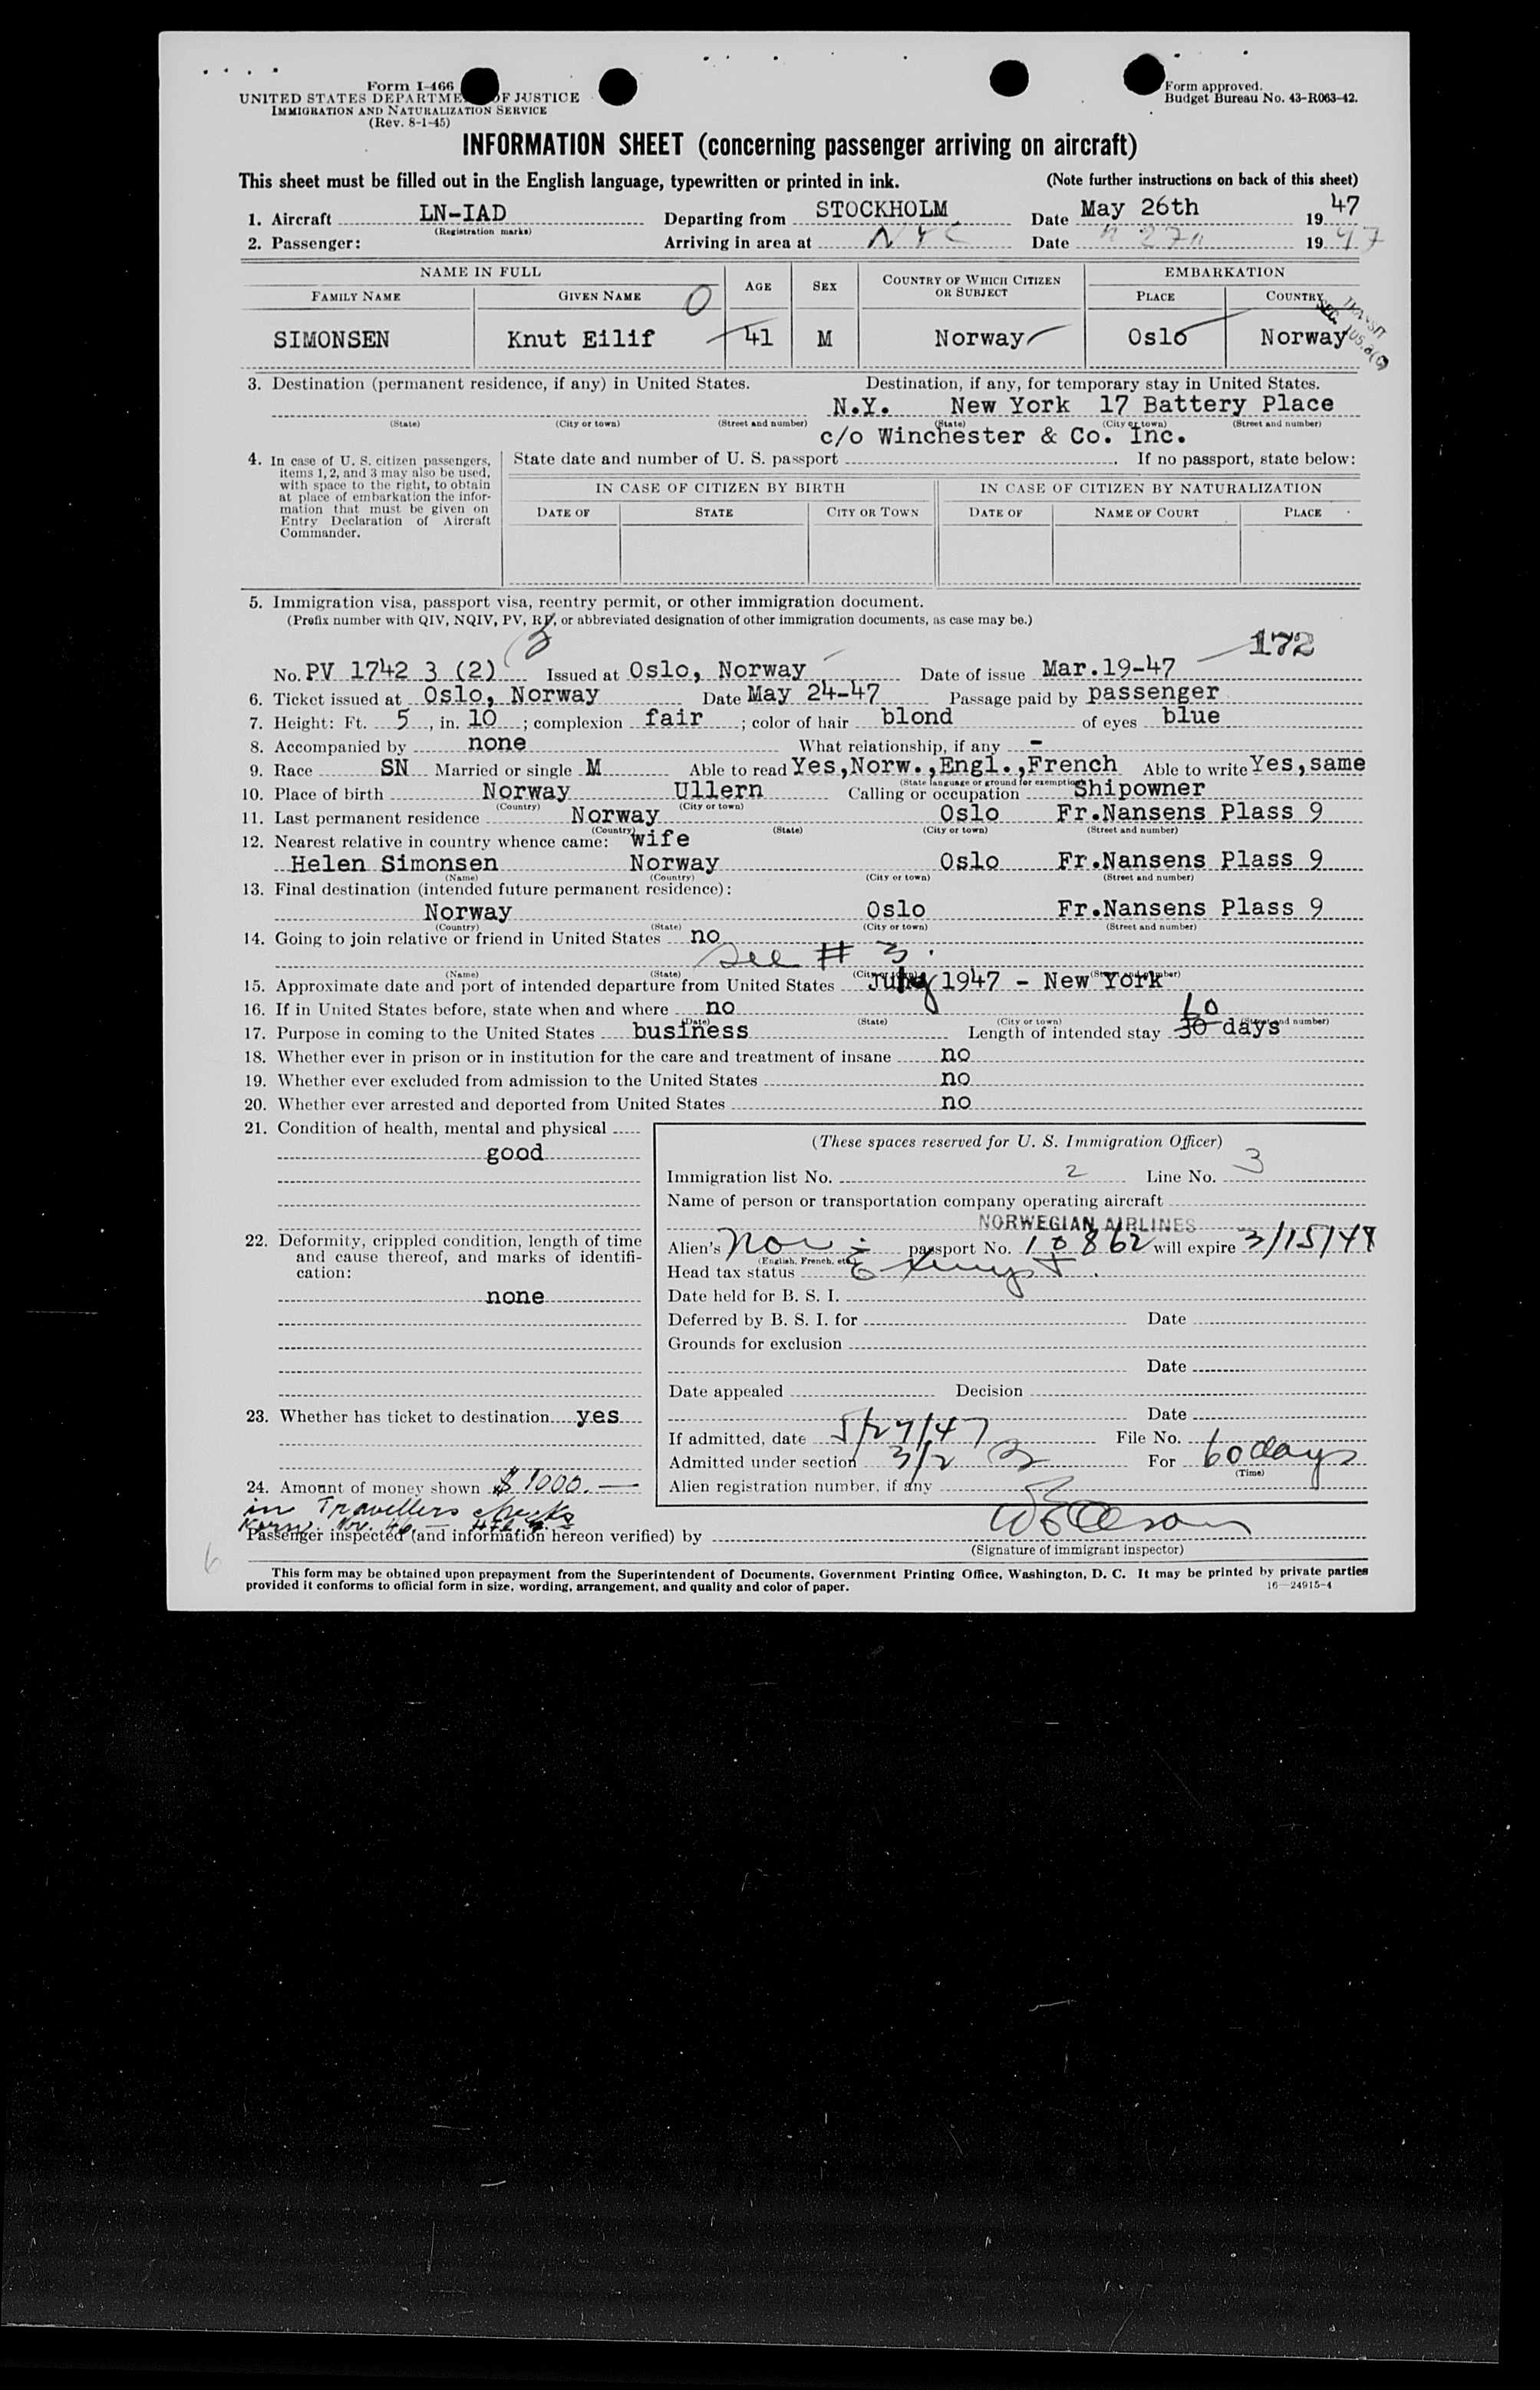 Form I-466
UNITED STATES DEPARTMENT OF JUSTICE
IMMIGRATION AND NATURALIZATION SERVICE
(Rev. 8-1-45)
Form approved.
Budget Bureau No. 43-R063-42.
INFORMATION SHEET (concerning passenger arriving on aircraft)
This sheet must be filled out in the English language, typewritten or printed in ink. (Note further instructions on back of this sheet)
1. Aircraft LN-IAD Departing from STOCKHOLM Date May 26th 1947
(Registration marks)
2. Passenger: Arriving in area at NYC Date " 27" 1947
NAME IN FULL AGE SEX COUNTRY OF WHICH CITIZEN OR SUBJECT EMBARKATION
FAMILY NAME GIVEN NAME PLACE COUNTRY
SIMONSEN Knut Eilif O 41 M Norway Oslo Norway
TRANSIT
3. Destination (permanent residence, if any) in United States. Destination, if any, for temporary stay in United States.
N.Y. New York 17 Battery Place
(State) (City or town) (Street and number) (State) (City or town) (Street and number)
c/o Winchester & Co. Inc.
4. In case of U. S. citizen passengers, items 1, 2, and 3 may also be used, with space to the right, to obtain at place of embarkation the information that must be given on Entry Declaration of Aircraft Commander.
State date and number of U. S. passport If no passport, state below:
IN CASE OF CITIZEN BY BIRTH IN CASE OF CITIZEN BY NATURALIZATION
DATE OF STATE CITY OR TOWN DATE OF NAME OF COURT PLACE
5. Immigration visa, passport visa, reentry permit, or other immigration document.
(Prefix number with QIV, NQIV, PV, RP, or abbreviated designation of other immigration documents, as case may be.)
172
No. PV 1742 3 (2) Issued at Oslo, Norway Date of issue Mar.19-47
6. Ticket issued at Oslo, Norway Date May 24-47 Passage paid by passenger
7. Height: Ft. 5, in. 10; complexion fair; color of hair blond of eyes blue
8. Accompanied by none What relationship, if any -
9. Race SN Married or single M Able to read Yes,Norw.,Engl.,French Able to write Yes,same
(State language or ground for exemption)
10. Place of birth Norway Ullern Calling or occupation Shipowner
(Country) (City or town)
11. Last permanent residence Norway Oslo Fr.Nansens Plass 9
(Country) (State) (City or town) (Street and number)
12. Nearest relative in country whence came: wife
Helen Simonsen Norway Oslo Fr.Nansens Plass 9
(Name) (Country) (City or town) (Street and number)
13. Final destination (intended future permanent residence):
Norway Oslo Fr.Nansens Plass 9
(Country) (State) (City or town) (Street and number)
14. Going to join relative or friend in United States no
See # 3.
(Name) (State) (City or town) (Street and number)
15. Approximate date and port of intended departure from United States July 1947 - New York
16. If in United States before, state when and where no
(Date) (State) (City or town) (Street and number)
17. Purpose in coming to the United States business Length of intended stay 30 60 days
18. Whether ever in prison or in institution for the care and treatment of insane no
19. Whether ever excluded from admission to the United States no
20. Whether ever arrested and deported from United States no
21. Condition of health, mental and physical
good
22. Deformity, crippled condition, length of time and cause thereof, and marks of identification:
none
23. Whether has ticket to destination yes
24. Amount of money shown $ 1000.—
in Travellers checks
(These spaces reserved for U. S. Immigration Officer)
Immigration list No. 2 Line No. 3
Name of person or transportation company operating aircraft
NORWEGIAN AIRLINES
Alien's Nor. passport No. 10862 will expire 3/15/48
(English, French, etc.)
Head tax status Exempt.
Date held for B. S. I.
Deferred by B. S. I. for Date
Grounds for exclusion
Date
Date appealed Decision
Date
If admitted, date 5/27/47 File No.
Admitted under section 3/2 For 60 days
(Time)
Alien registration number, if any
Passenger inspected (and information hereon verified) by
(Signature of immigrant inspector)
This form may be obtained upon prepayment from the Superintendent of Documents, Government Printing Office, Washington, D. C. It may be printed by private parties
provided it conforms to official form in size, wording, arrangement, and quality and color of paper. 16—24915-4